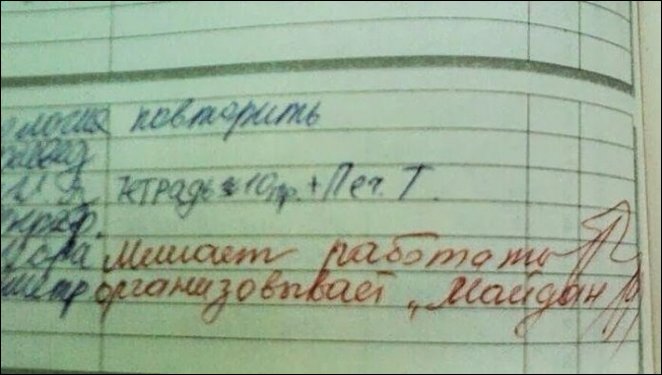 ология повторить
тетрадь 10пр. + Печ. Т.
Мешает работать
метр организовывает „Майдан"